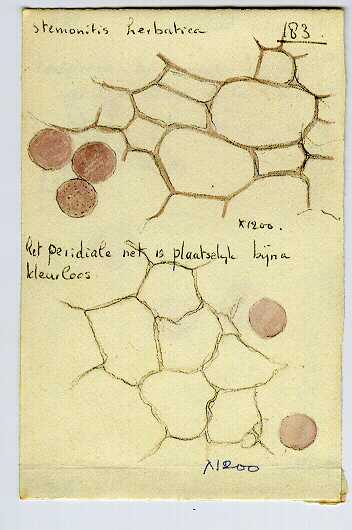 stemonitis herbatica 183.
X1200.
Het peridiale net is plaatselijk bijna
kleurloos
X1200